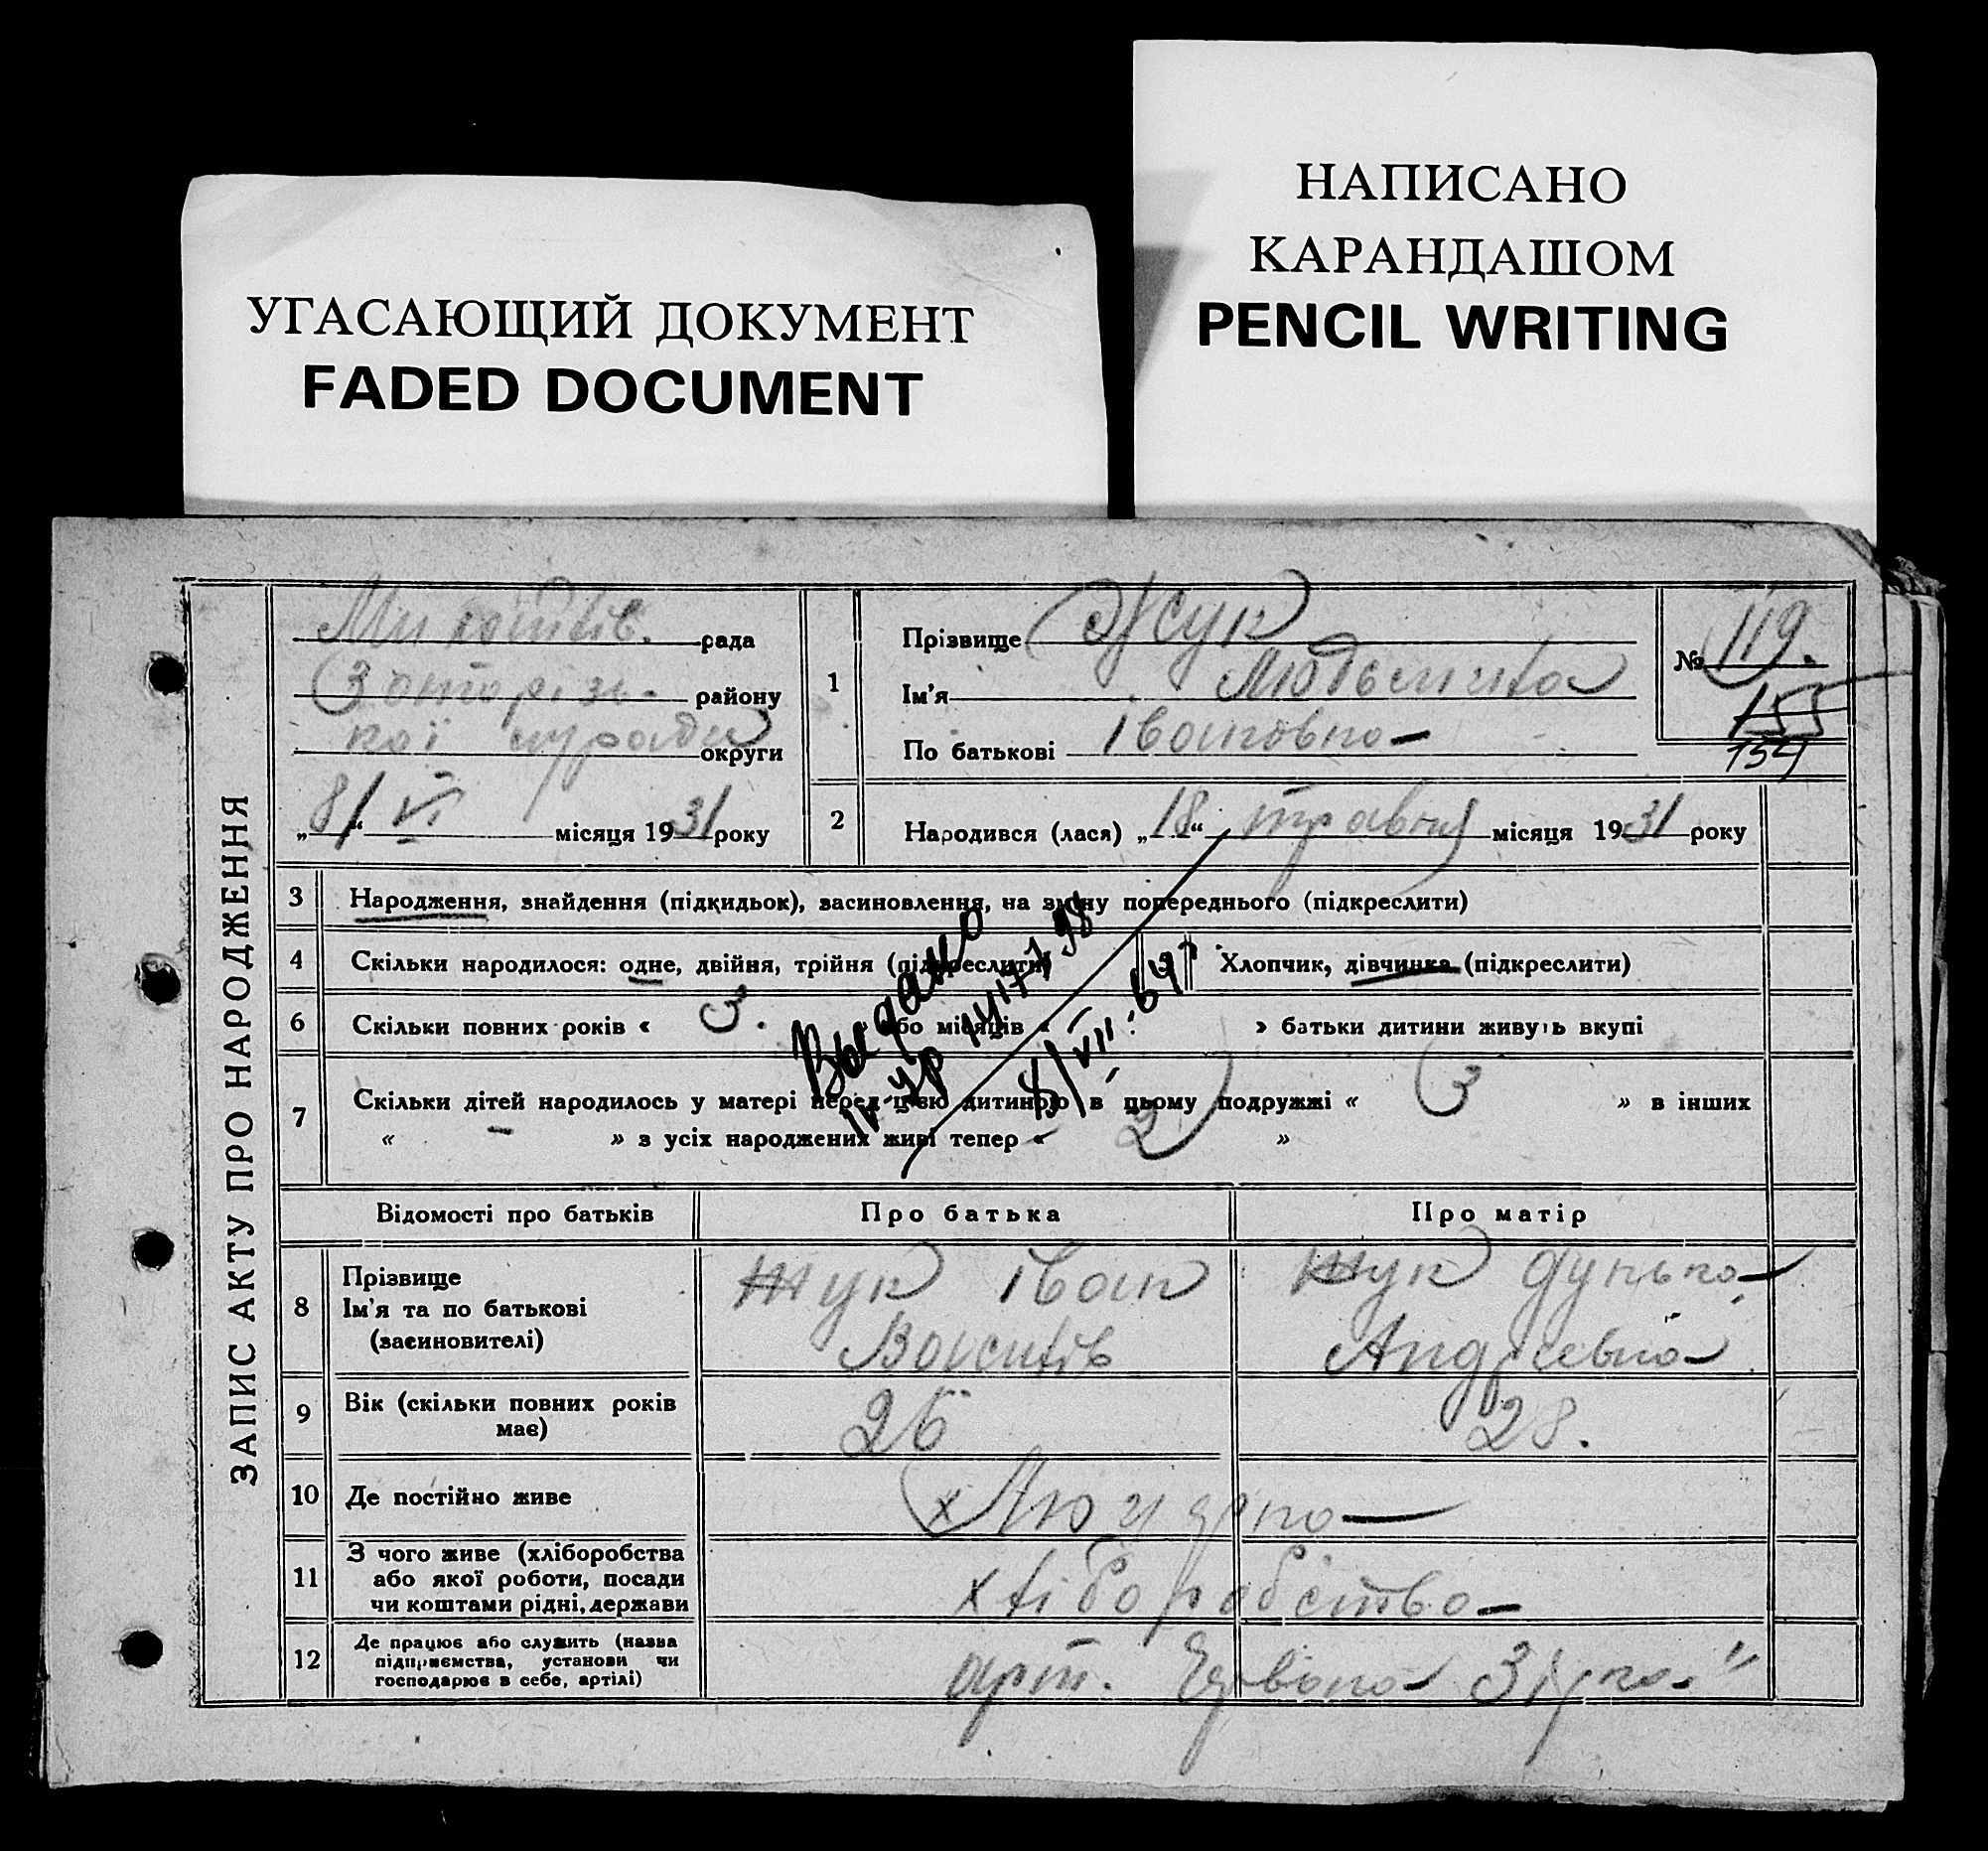 УГАСАЮЩИЙ ДОКУМЕНТ
FADED DOCUMENT
НАПИСАНО
КАРАНДАШОМ
PENCIL WRITING
ЗАПИС АКТУ ПРО НАРОДЖЕННЯ
рада
району
округи
„8/“ VI місяця 1931 року
1
Прізвище Жук
Ім'я Людьмила
По батькові Івановна
№ 119.
155
154
2 Народився (лася) „18“ травня місяця 1931 року
3 Народження, знайдення (підкидьок), засиновлення, на зміну попереднього (підкреслити)
4 Скільки народилося: одне, двійня, трійня (підкреслити)
Хлопчик, дівчинка (підкреслити)
6 Скільки повних років « 3. » або місяців « » батьки дитини живуть вкупі
7 Скільки дітей народилось у матері перед цією дитиною в цьому подружжі « 3 » в інших
« – » з усіх народжених живі тепер « 2 »
Выдано
18/VII-64
Відомості про батьків
Про батька
Про матір
8 Прізвище
Ім'я та по батькові
(засиновителі)
Жук Іван
Жук Дунька
Андріевна
9 Вік (скільки повних років
має)
26
28.
10 Де постійно живе
х
11 З чого живе (хліборобства
або якої роботи, посади
чи коштами рідні, держави
хліборобство
12 Де працює або служить (назва
підприємства, установи чи
господарює в себе, артілі)
арт. Червона Зірка"